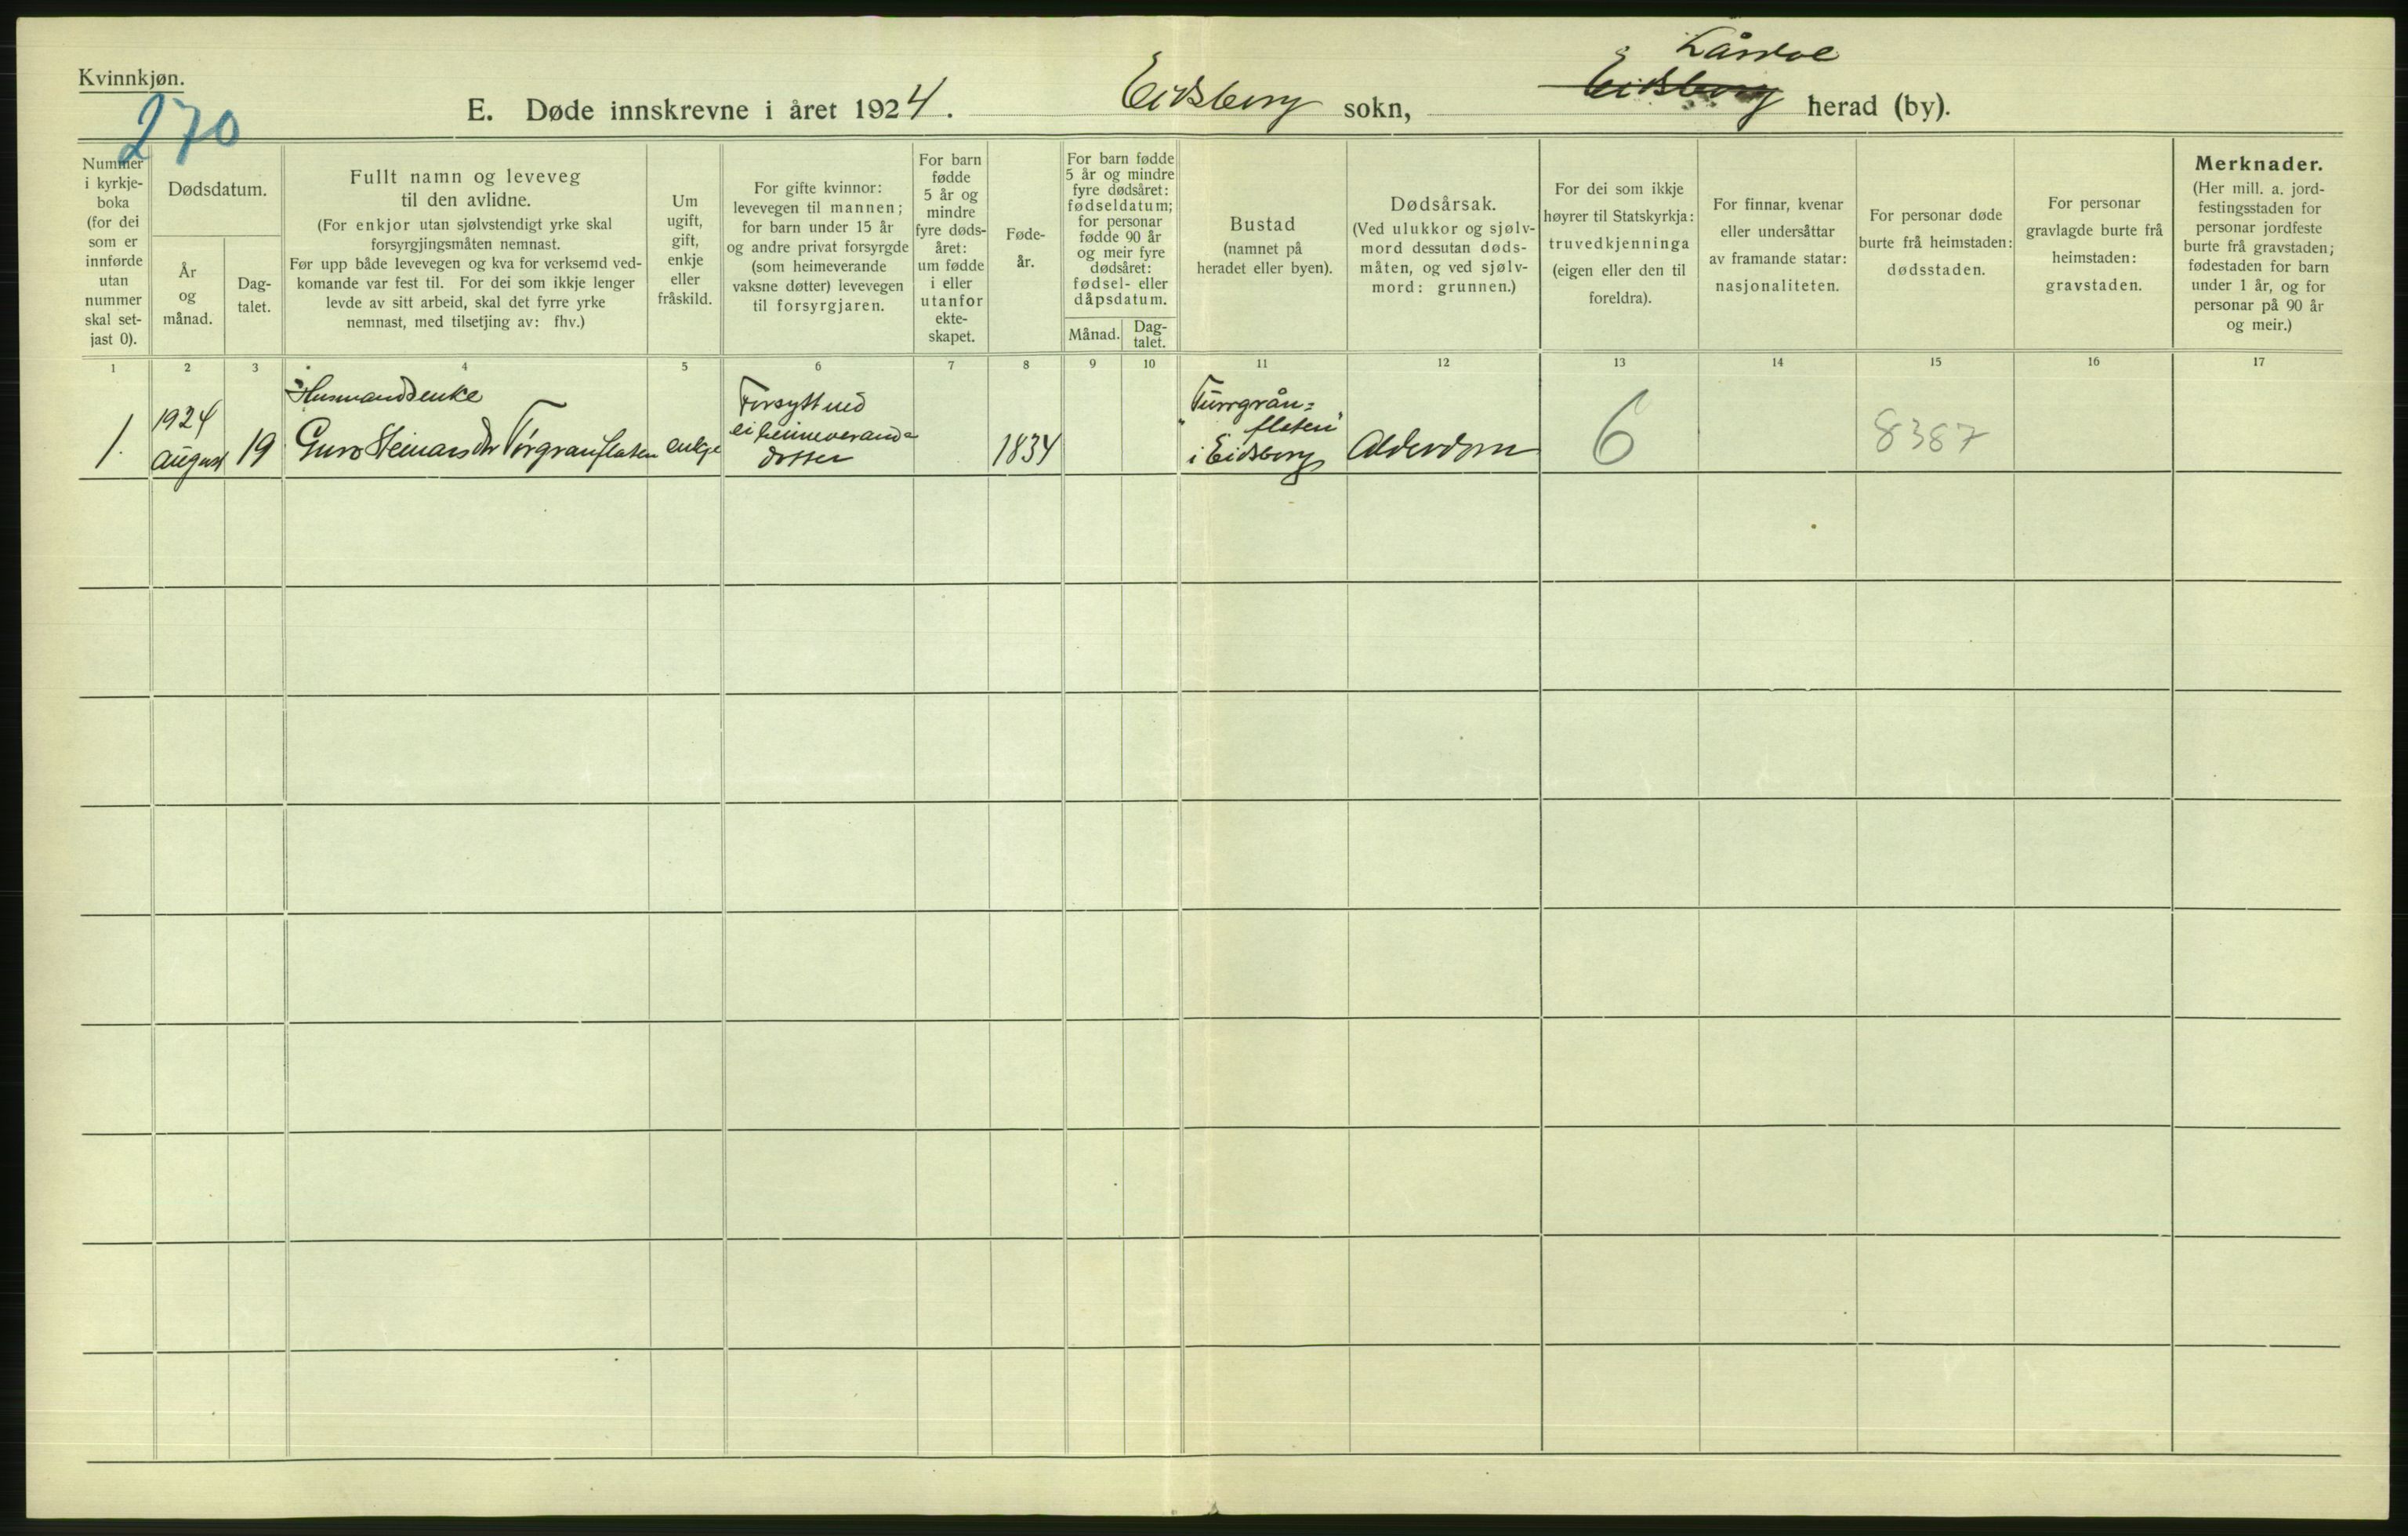 Kvinnkjøn.
270
E. Døde innskrevne i året 1924. Eidsborg sokn, Eidsborg Lårdal herad (by).
Nummer
i kyrkje-
boka
(for dei
som er
innførde
utan
nummer
skal set-
jast 0).
Dødsdatum.
År
og
månad.
Dag-
talet.
Fullt namn og leveveg
til den avlidne.
(For enkjor utan sjølvstendigt yrke skal
forsyrgjingsmåten nemnast.
Før upp både levevegen og kva for verksemd ved-
komande var fest til. For dei som ikkje lenger
levde av sitt arbeid, skal det fyrre yrke
nemnast, med tilsetjing av: fhv.)
Um
ugift,
gift,
enkje
eller
fråskild.
For gifte kvinnor:
levevegen til mannen;
for barn under 15 år
og andre privat forsyrgde
(som heimeverande
vaksne døtter) levevegen
til forsyrgjaren.
For barn
fødde
5 år og
mindre
fyre døds-
året:
um fødde
i eller
utanfor
ekte-
skapet.
Føde-
år.
For barn fødde
5 år og mindre
fyre dødsåret:
fødseldatum;
for personar
fødde 90 år
og meir fyre
dødsåret:
fødsel- eller
dåpsdatum.
Månad.
Dag-
talet.
Bustad
(namnet på
heradet eller byen).
Dødsårsak.
(Ved ulukkor og sjølv-
mord dessutan døds-
måten, og ved sjølv-
mord: grunnen.)
For dei som ikkje
høyrer til Statskyrkja:
truvedkjenninga
(eigen eller den til
foreldra).
For finnar, kvenar
eller undersåttar
av framande statar:
nasjonaliteten.
For personar døde
burte frå heimstaden:
dødsstaden.
For personar
gravlagde burte frå
heimstaden:
gravstaden.
Merknader.
(Her mill. a. jord-
festingsstaden for
personar jordfeste
burte frå gravstaden;
fødestaden for barn
under 1 år, og for
personar på 90 år
og meir.)
1 2 3 4 5 6 7 8 9 10 11 12 13 14 15 16 17
1.
1924
august
19
Husmandsenke
Guro Steinarsdtr Tørgranflaten
enkje
Forsytt ved
ei heimeverande
dotter
1834
Turrgrån=
flaten
i Eidsborg
Alderdom
6
8387